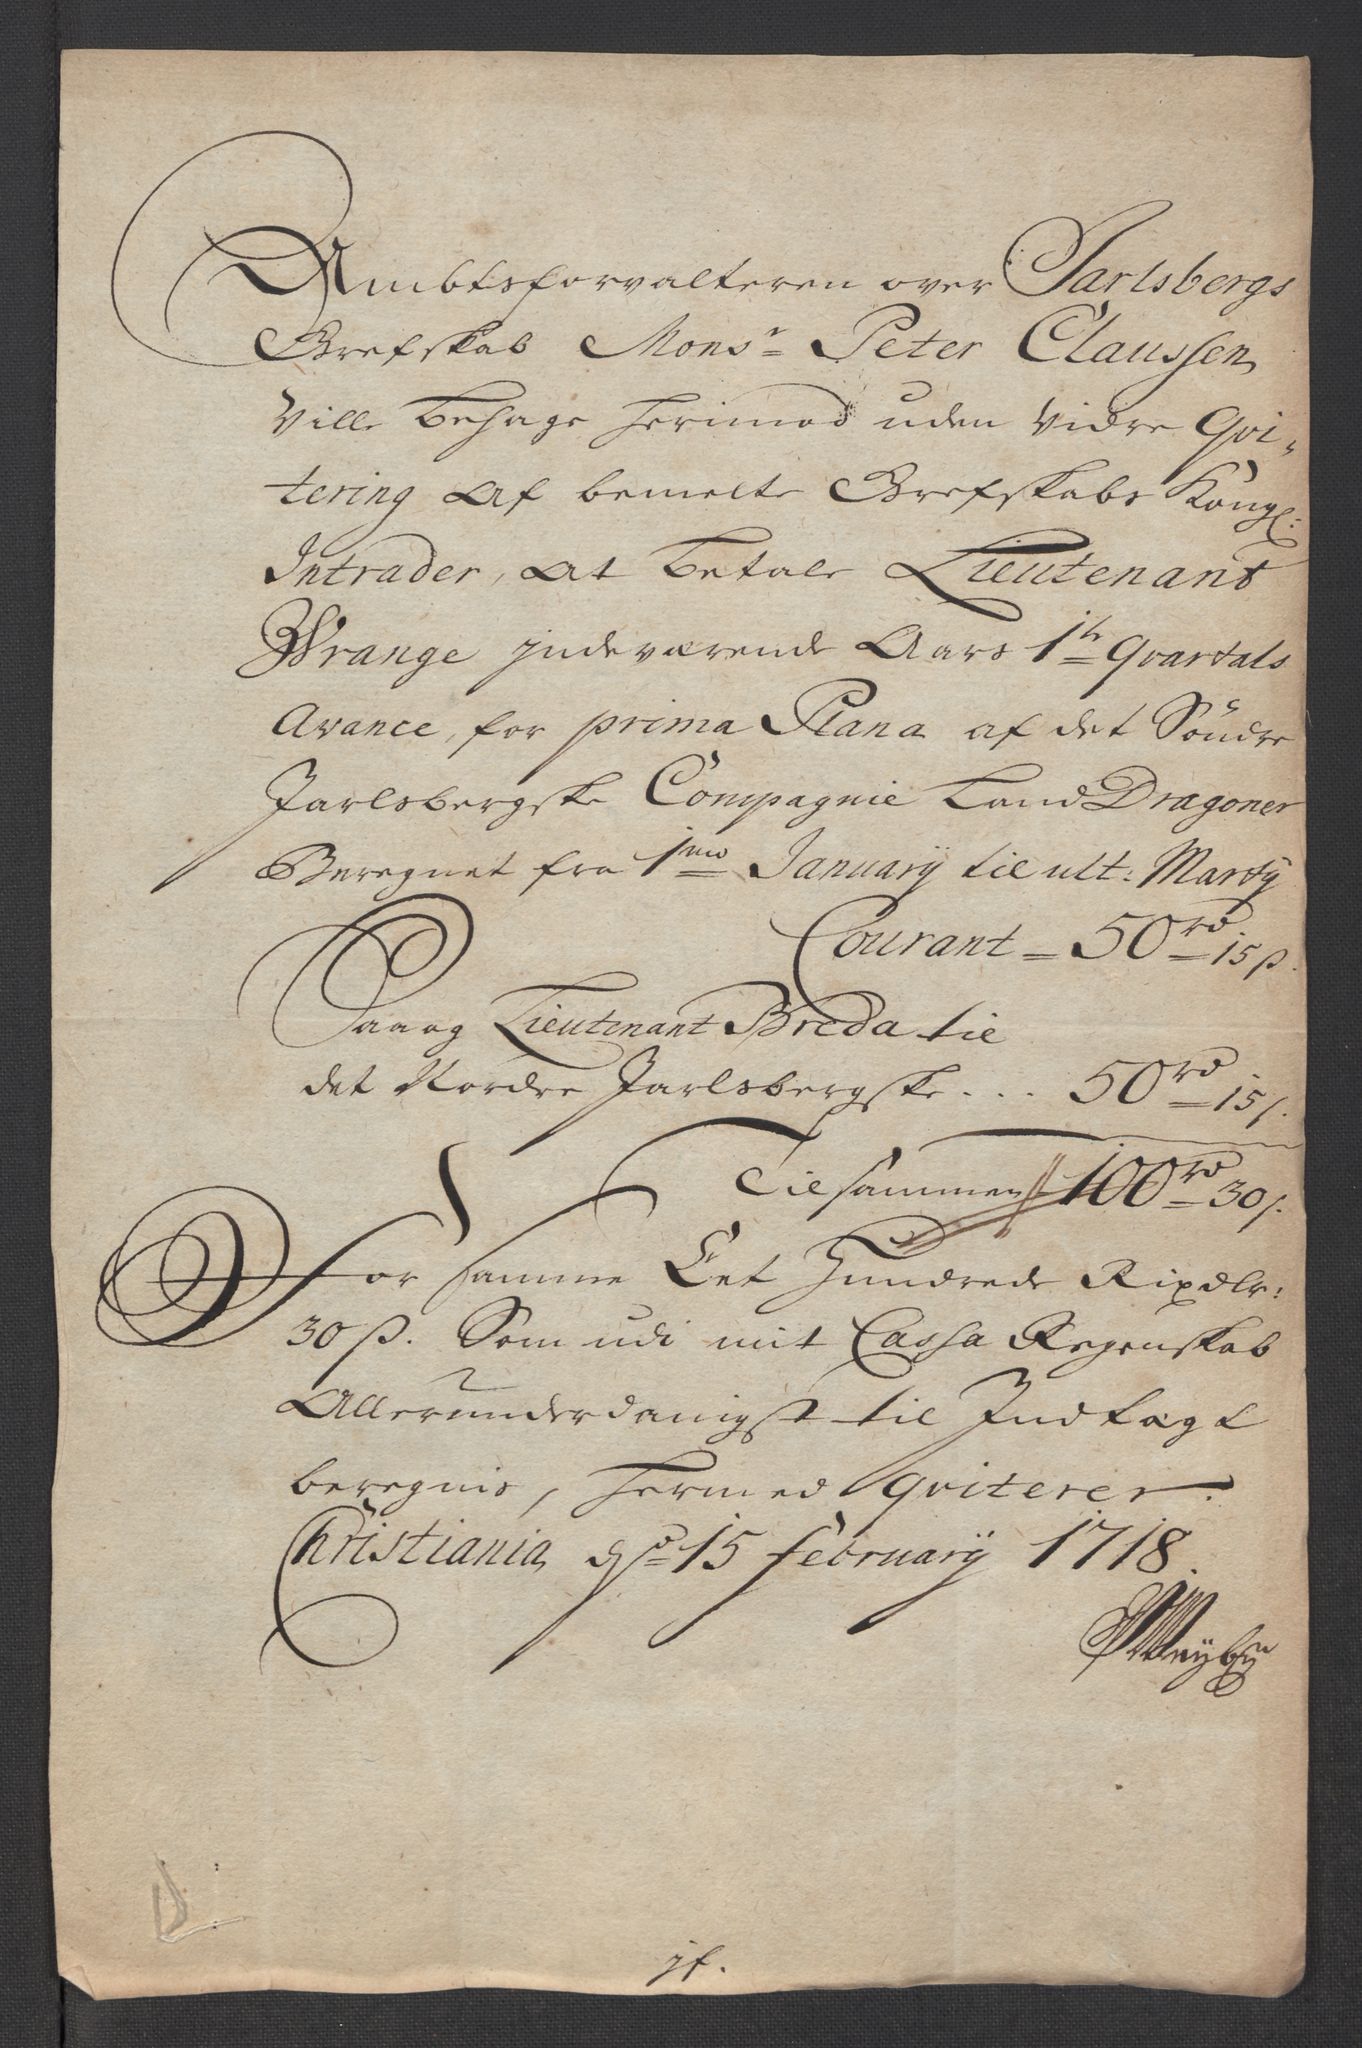 Ambtsforvalteren over Jarlsbergs
Grefskab Monsr Peter Claussen
Ville behage herimod uden vidre Qvi-
tering af bemelte Grefskabs Kongl:
Intrader, at betale Lieutenant
Wrange indeværende Aars 1te Qvartals
Avance, for prima Plana af det Söndre
Jarlsbergske Compagnie Land Dragoner
Beregnet fra 1mo January til ult: Marty
Courant = 50rd 15 ß.
Saa og Lieutenant Breda til
det Nordre Jarlsbergske ... 50rd 15 ß.
Tilsammen 100rd 30 ß.
For samme Eet Hundrede Rixdlr:
30 ß. Som udi mit Cassa Regenskab
Allerunderdanigst til Indtægt
beregnis, hermed qviterer.
Christiania dend 15 February 1718.